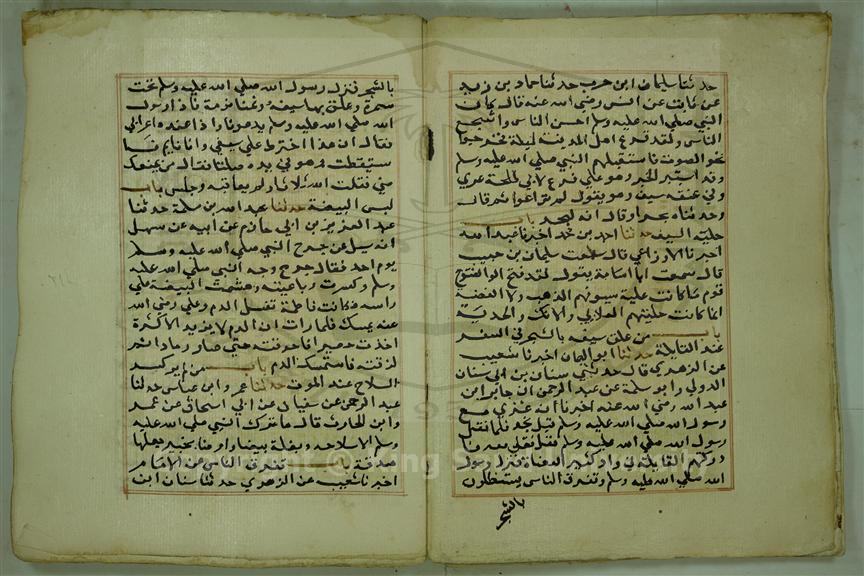 حدثنا سليمان ابن حرب حدثنا حماد بن زيد
عن ثابت عن انس رضي الله عنه قال كان
النبي صلي الله عليه وسلم احسن الناس واشجع
الناس ولقد فزع اهل المدينة ليلة فخرجوا
نحو الصوت فاستقبلهم النبي صلي الله عليه وسلم
وقد استبر الخبر وهو علي فرس لابي طلحة عري
وفي عنقه سيف وهو يقول لم تراعوا ثم قال
وجدناه بحرا وقال انه لبحر باب
حلية السيف حدثنا احمد بن محمد اخبرنا عبد الله
اخبرنا الاوزاعي قال سمعت سليمان بن حبيب
قال سمعت ابا امامة يقول لقد فتح الفتوح
قوم ما كانت حلية سيوفهم الذهب ولا الفضة
انما كانت حليتهم العلابي والانك والحديد
باب من علق سيفه بالشجر في السفر
عند القايلة حدثنا ابو اليمان اخبرنا شعيب
عن الزهري قال حدثني سنان بن ابي سنان
الدولي وابو سلمة بن عبد الرحمن ان جابر ابن
عبد الله رضي الله عنه اخبرنا انه غزي مع
رسول الله صلي الله عليه وسلم قبل نجد فلما قفل
رسول الله صلي الله عليه وسلم قفل معه فا
دركتهم القايلة في واد كثير العضاة فنزل رسول
الله صلي الله عليه وسلم وتفرق الناس يستظلون
بالشجر
بالشجر فنزل رسول الله صلي الله عليه وسلم تحت
سمرة وعلق بها سيفه ونمنا نومة فاذا رسول
الله صلي الله عليه وسلم يدعونا واذا عنده اعرابي
فقال ان هذا اخترط علي سيفي وانا نايم فا
ستيقظت وهو في يده صلتا فقال من يمنعك
مني فقلت الله ثلاثا ولم يعاقبه وجلس باب
لبس البيضة حدثنا عبد الله بن مسلمة حدثنا
عبد العزيز بن ابي حازم عن ابيه عن سهل
انه سيل عن جرح النبي صلي الله عليه وسلم
يوم احد فقال جرح وجه النبي صلي الله عليه
وسلم وكسرت رباعيته وهشمت البيضة علي
راسه فكانت فاطمة تغسل الدم وعلي رضي الله
عنه يمسك فلما رات ان الدم لا يزيد الا كثرة
اخذت حصيرا فاحرقته حتي صار رمادا ثم
لزقته فاستمسك الدم باب من لم ير كسر
السلاح عند الموت حدثنا عمرو ابن عباس حدثنا
عبد الرحمن عن سفيان عن ابي اسحاق عن عمر
وابن الحارث قال ما ترك النبي صلي الله عليه
وسلم الا سلاحه وبغلة بيضا وارضا بخيبر جعلها
صدقة باب تفرق الناس عن الامام
اخبرنا شعيب عن الزهري حدثنا سنان ابن